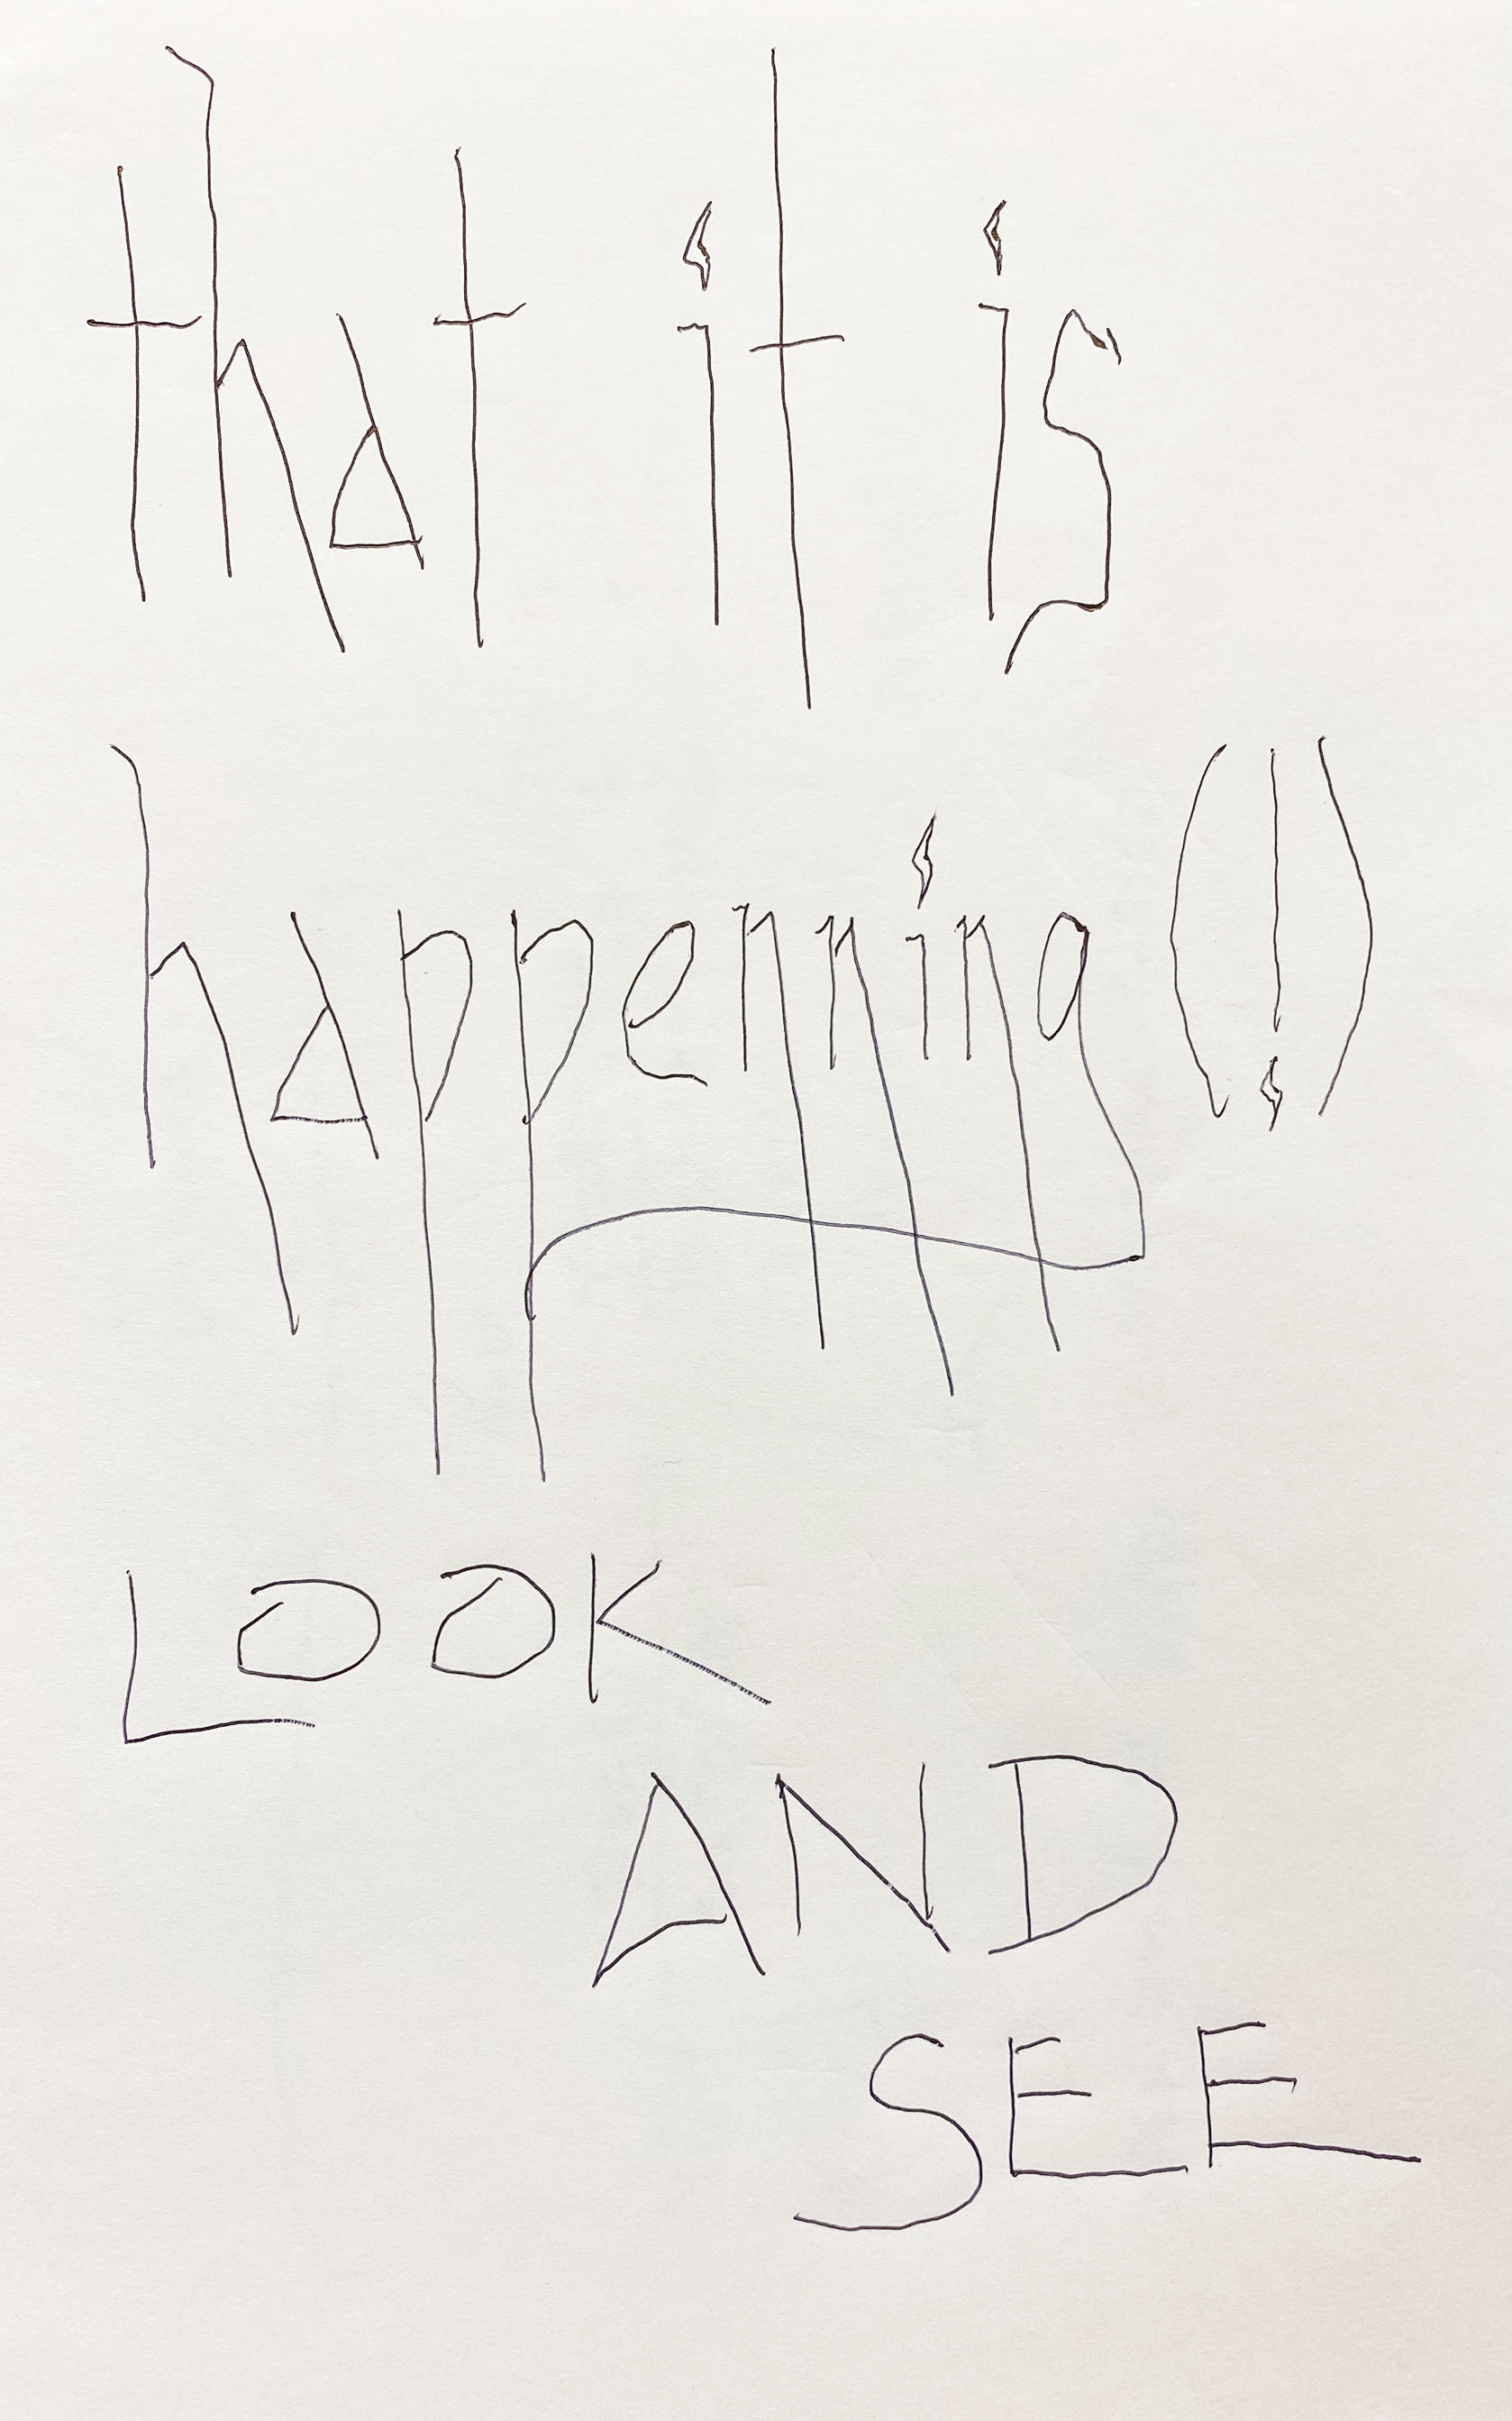 that it is
happenning(!)
LOOK
AND
SEE